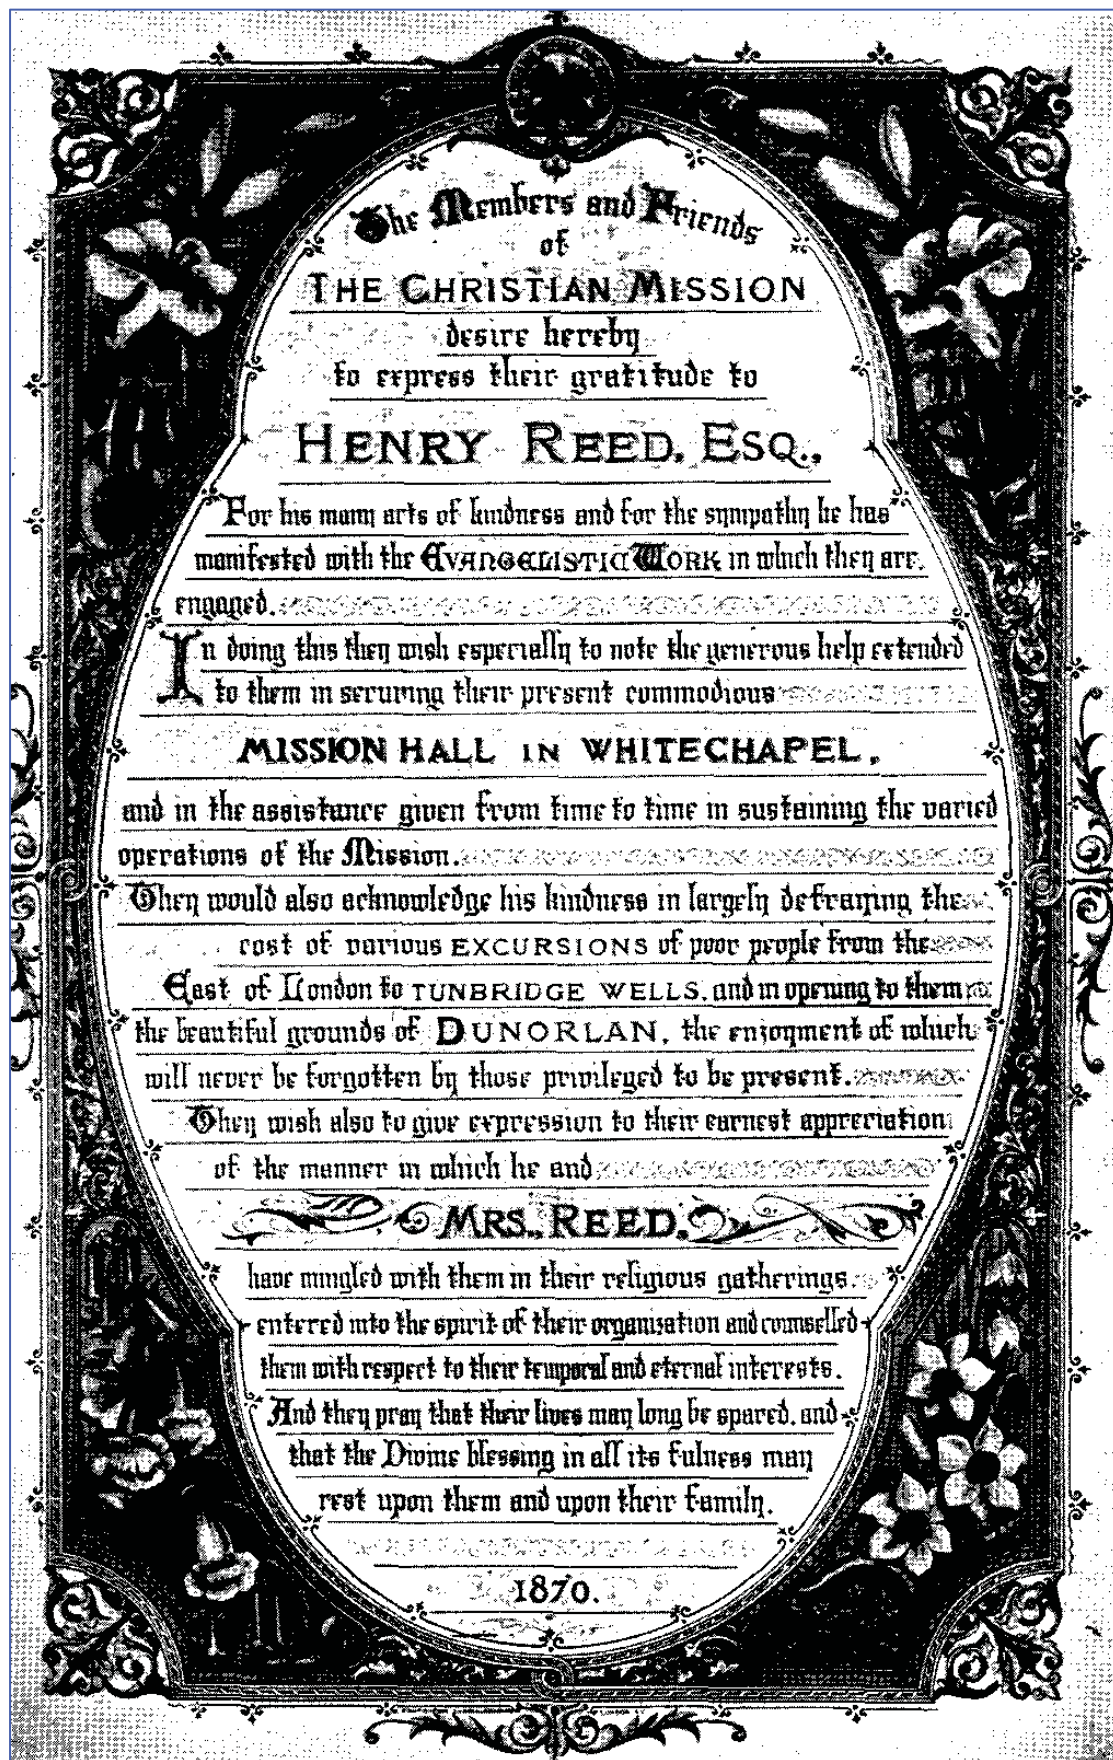 The Members and Friends
of
THE CHRISTIAN MISSION
desire hereby
to express their gratitude to
HENRY REED, ESQ.,
For his many acts of kindness and for the sympathy he has
manifested with the EVANGELISTIC WORK in which they are
engaged.
In doing this they wish especially to note the generous help extended
to them in securing their present commodious
MISSION HALL IN WHITECHAPEL,
and in the assistance given from time to time in sustaining the varied
operations of the Mission.
They would also acknowledge his kindness in largely defraying the
cost of various EXCURSIONS of poor people from the
East of London to TUNBRIDGE WELLS, and in opening to them
the beautiful grounds of DUNORLAN, the enjoyment of which
will never be forgotten by those privileged to be present.
They wish also to give expression to their earnest appreciation
of the manner in which he and
MRS. REED,
have mingled with them in their religious gatherings,
entered into the spirit of their organization and counselled
them with respect to their temporal and eternal interests.
And they pray that their lives may long be spared, and
that the Divine blessing in all its fulness may
rest upon them and upon their family.
1870.